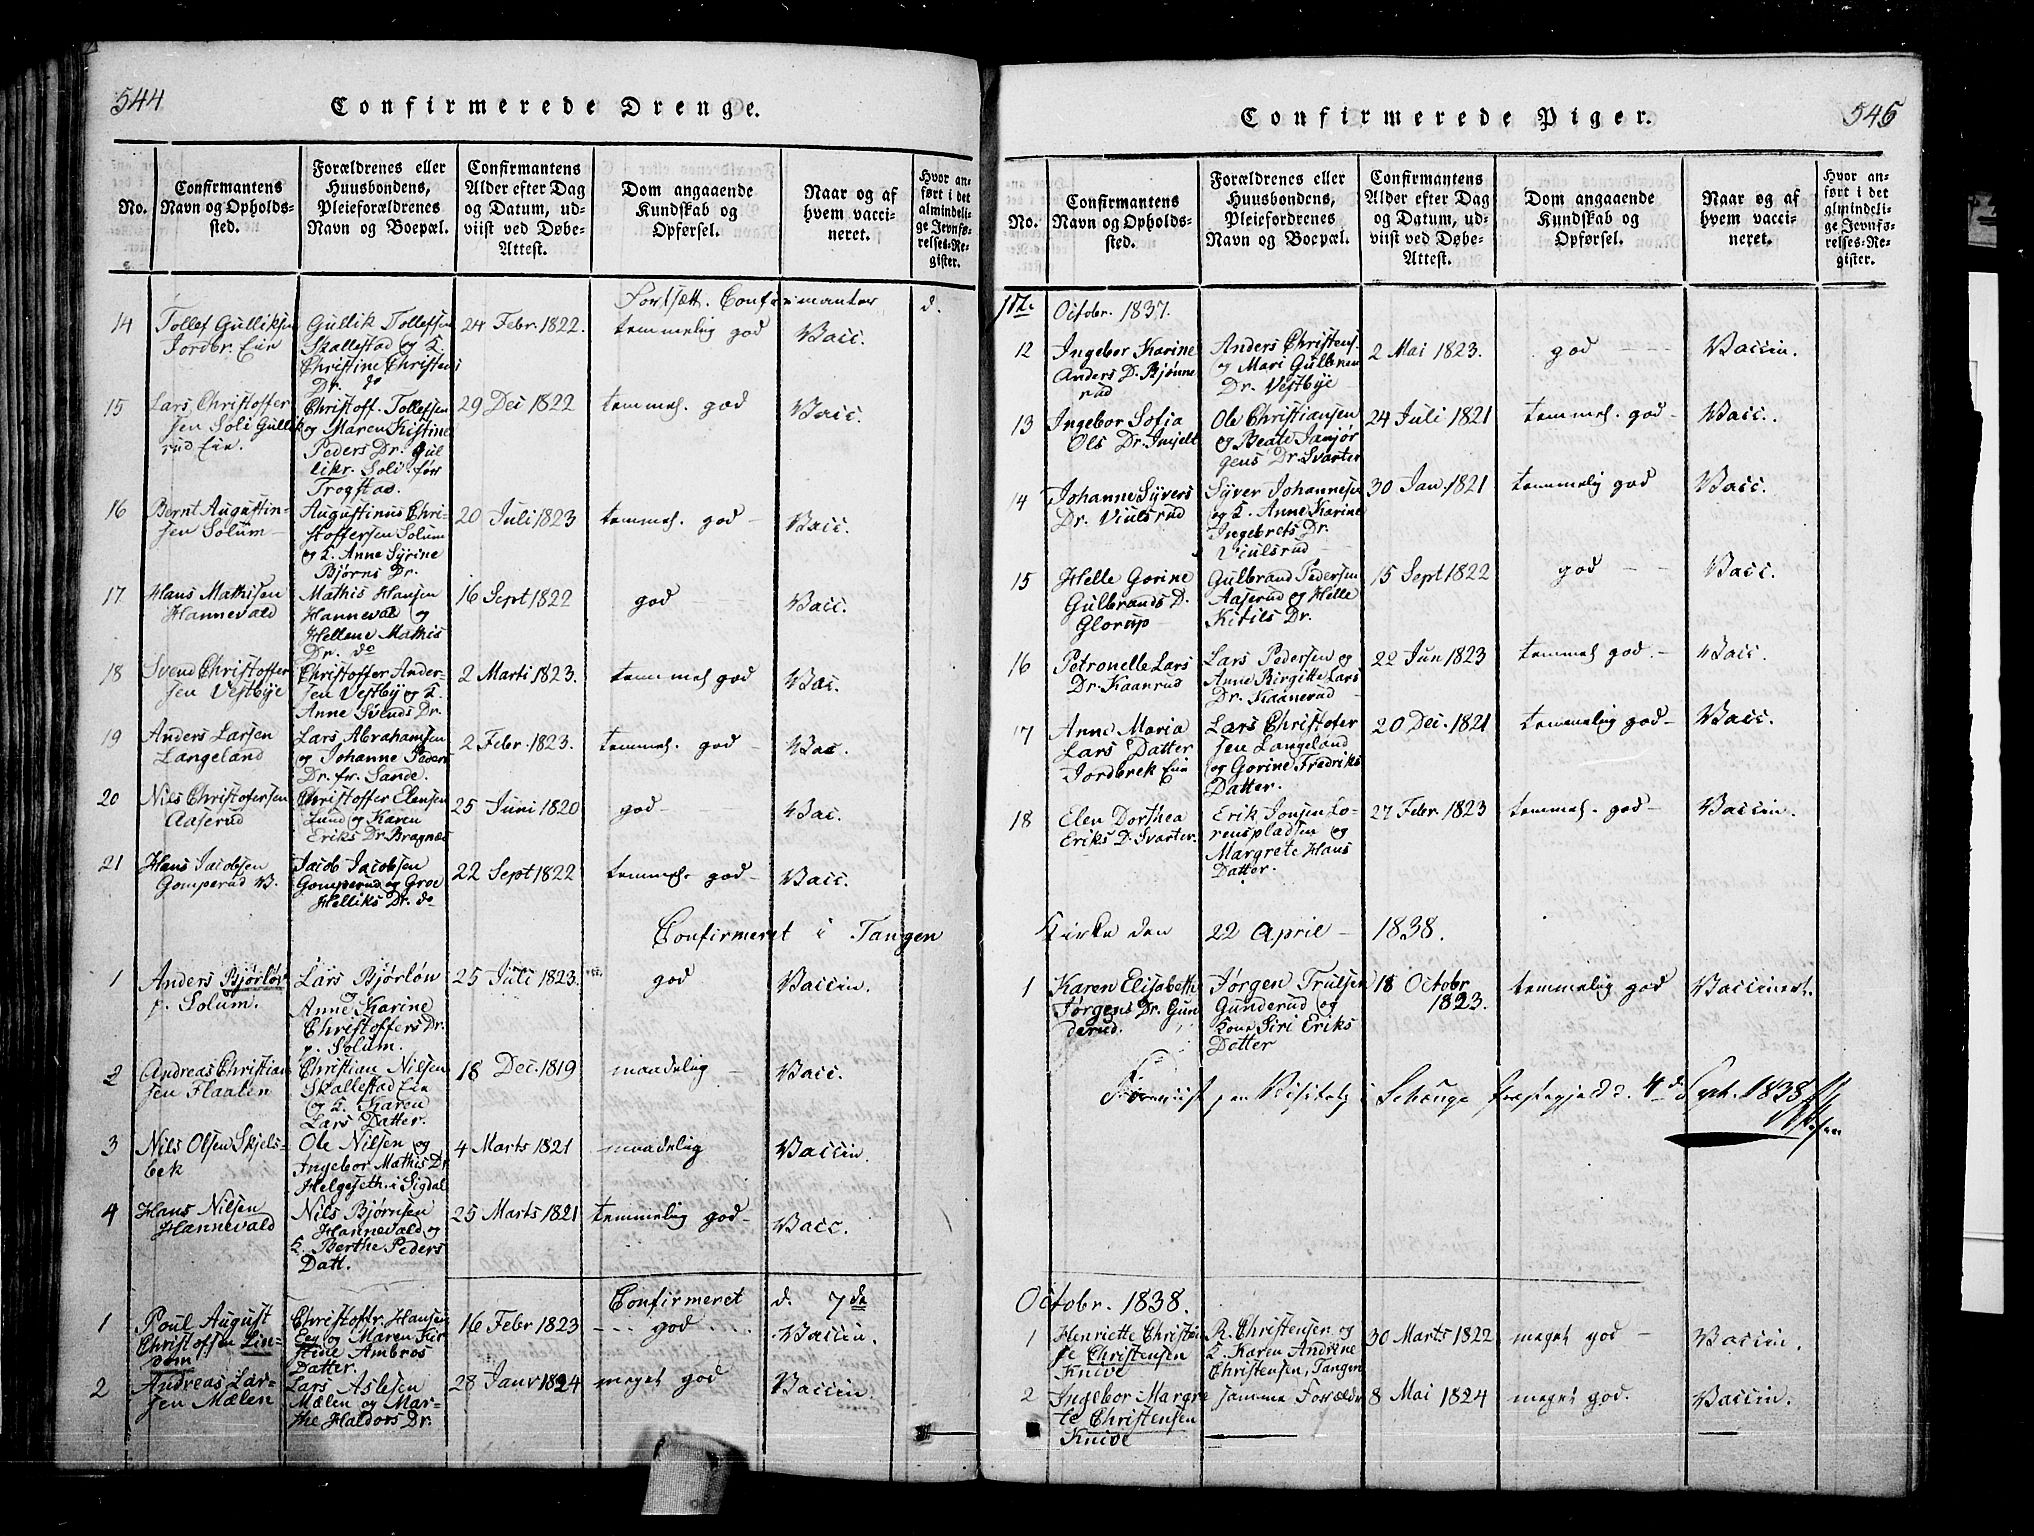 544
Confirmerede Drenge.
No.
Confirmantens
Navn og Opholds-
sted.
Forældrenes eller
Huusbondens,
Pleieforældrenes
Navn og Boepæl.
Confirmantens
Alder efter Dag
og Datum, ud-
viist ved Døbe-
Attest.
Dom angaaende
Kundskab og
Opførsel.
Naar og af
hvem vacci-
neret.
Hvor an-
ført i det
almindeli-
ge Jevnfø-
relses-Re-
gister.
Fortsætt. Confirmanter d.
14
Tollef Gulliksen
Jordbr. Eie
Gullik Tollefsen
Skallestad og K.
Christine Christens
Dr. do
24 Febr. 1822.
temmelig god
Vacc.
15
Lars Christoffer
sen Soli Gullik
rud Eie.
Christoff. Tollefsen
og Maren Kistine
Peders Dr. Gul
likr. Soli før
Trogstad.
29 Dei 1822
temmel. god
Vacc.
16
Bernt Augustin-
sen Solum
Augustinus Chri-
stoffersen Solum
og K. Anne Syrine
Bjørns Dr.
20 Juli 1823
temmel. god
Vacc.
17
Hans Mathisen
Hannevald
Mathis Hansen
Hannevald og
Hellene Mathis
Dr. do
16 Sept 1822
god
Vacc.
18
Svend Christoffer
sen Vestbye
Christoffer Ander-
sen Vestby og K.
Anne Svends Dr.
2 Marti 1823.
temmel god
Vac.
19
Anders Larsen
Langeland
Lars Abrahamsen
og Johanne Peders
Dr. fr. Sande.
2 Febr. 1823.
temmel. god
Vac.
20
Nils Christofersen
Aaserud
Christoffer Elensen
Lund og Karen
Eriks Dr. Bragnæs
25 Juni 1820
god
Vac.
21
Hans Jacobsen
Gomperud B.
Jacob Jacobsen
Gomperud og Groe
Helliks Dr. do
22 Sept 1822
temmel. god
Vacc.
Confirmeret i Tangen
1
Anders Bjørløn
p. Solum.
Lars Bjørløn
og
Anne Karine
Christoffers Dr.
p. Solum.
25 Juli 1823.
god
Vaccin.
2
Andreas Christian
sen Flaaten
Christian Nilsen
Skallestad Eie
og K. Karen
Lars Datter.
18 Dec. 1819
maadelig
Vacc.
3
Nils Olsen Skjels-
bek
Ole Nilsen og
Ingebor Mathis Dr
Helgeseth i Sigdal
4 Marts 1821
maadelig
Vaccin.
4
Hans Nilsen
Hannevald
Nils Bjørnsen
Hannevald og
K. Berthe Peders
Datt.
25 Marts 1821
temmelig god
Vacc.
Confirmeret d. 7de
1
Poul August
Christofsen Lin-
dom
Christoffr. Hansen
Eeg og Maren Kir
stine Ambros
Datter.
16 Febr 1823
god
Vaccin.
2
Andreas Lar-
sen Mælen
Lars Aslesen
Mælen og Mar-
the Haldors Dr.
28 Janv 1824
meget god
Vaccin.
545
Confirmerede Piger.
No.
Confirmantens
Navn og Opholds-
sted.
Forældrenes eller
Huusbondens,
Pleiefordrenes
Navn og Boepæl.
Confirmantens
Alder efter Dag
og Datum, ud-
viist ved Døbe-
Attest.
Dom angaaende
Kundskab og
Opførsel.
Naar og af
hvem vacci-
neret.
Hvor an-
ført i det
almindeli-
ge Jevnfø-
relses-Re-
gister.
Octobr. 1837.
12
Ingebor Karine
Anders D. Bjønne
rud
Anders Christens.
og Mari Gulbran
Dr. Vestbye
2 Mai 1823.
god
Vaccin.
13
Ingebor Sofia
Ols Dr.
Ole Christiansen
og Beate Janjør
gens Dr. Svarter
24 Juli 1821
temmel. god
Vacc.
14
Johanne Syvers
Dr. Viulsrud
Syver Johannesen
og K. Anne Karine
Ingebrets Dr.
Viulsrud
30 Jan. 1821
temmelig god
Vacc.
15
Helle Gorine
Gulbrands D.
Glorup
Gulbrand Pedersen
Aaserud og Helle
Kitils Dr.
15 Sept 1822
god
Vacc.
16
Petronelle Lars
Dr. Kaanrud
Lars Pedersen og
Anne Birgitte Lars
Dr. Kaanerud
22 Jun 1823
temmel god.
Vacc.
17
Anne Maria
Lars Datter
Jordbrek Eie
Lars Christofer
sen Langeland
og Gorine Fredriks
Datter.
20 Dec. 1821
temmelig god
Vacc.
18
Elen Dorthea
Eriks D. Svarter.
Erik Jonsen Lo-
renspladsen og
Margrete Hans
Datter.
27 Febr. 1823
temmel. god
Vaccin.
Kirke den 22 April 1838.
1
Karen Elisabeth
Jørgens Dr. Gun
derud.
Jørgen Trulsen
Gunderud og
Kone Siri Eriks
Datter
18 Octobr
1823.
temmelig god
Vaccineret.
Foreviist paa Visitats i Schouge Præstegjeld d. 4de Sept. 1838
Octobr. 1838.
1
Henriette Christin
se Christensen
Knive
R. Christensen og
K. Karen Andrine
Christensen, Tangen
30 Marts 1822
meget god
Vaccin.
2
Ingebor Margre
te Christensen
Knive
samme Forældre
8 Mai 1824
meget god.
Vaccin.